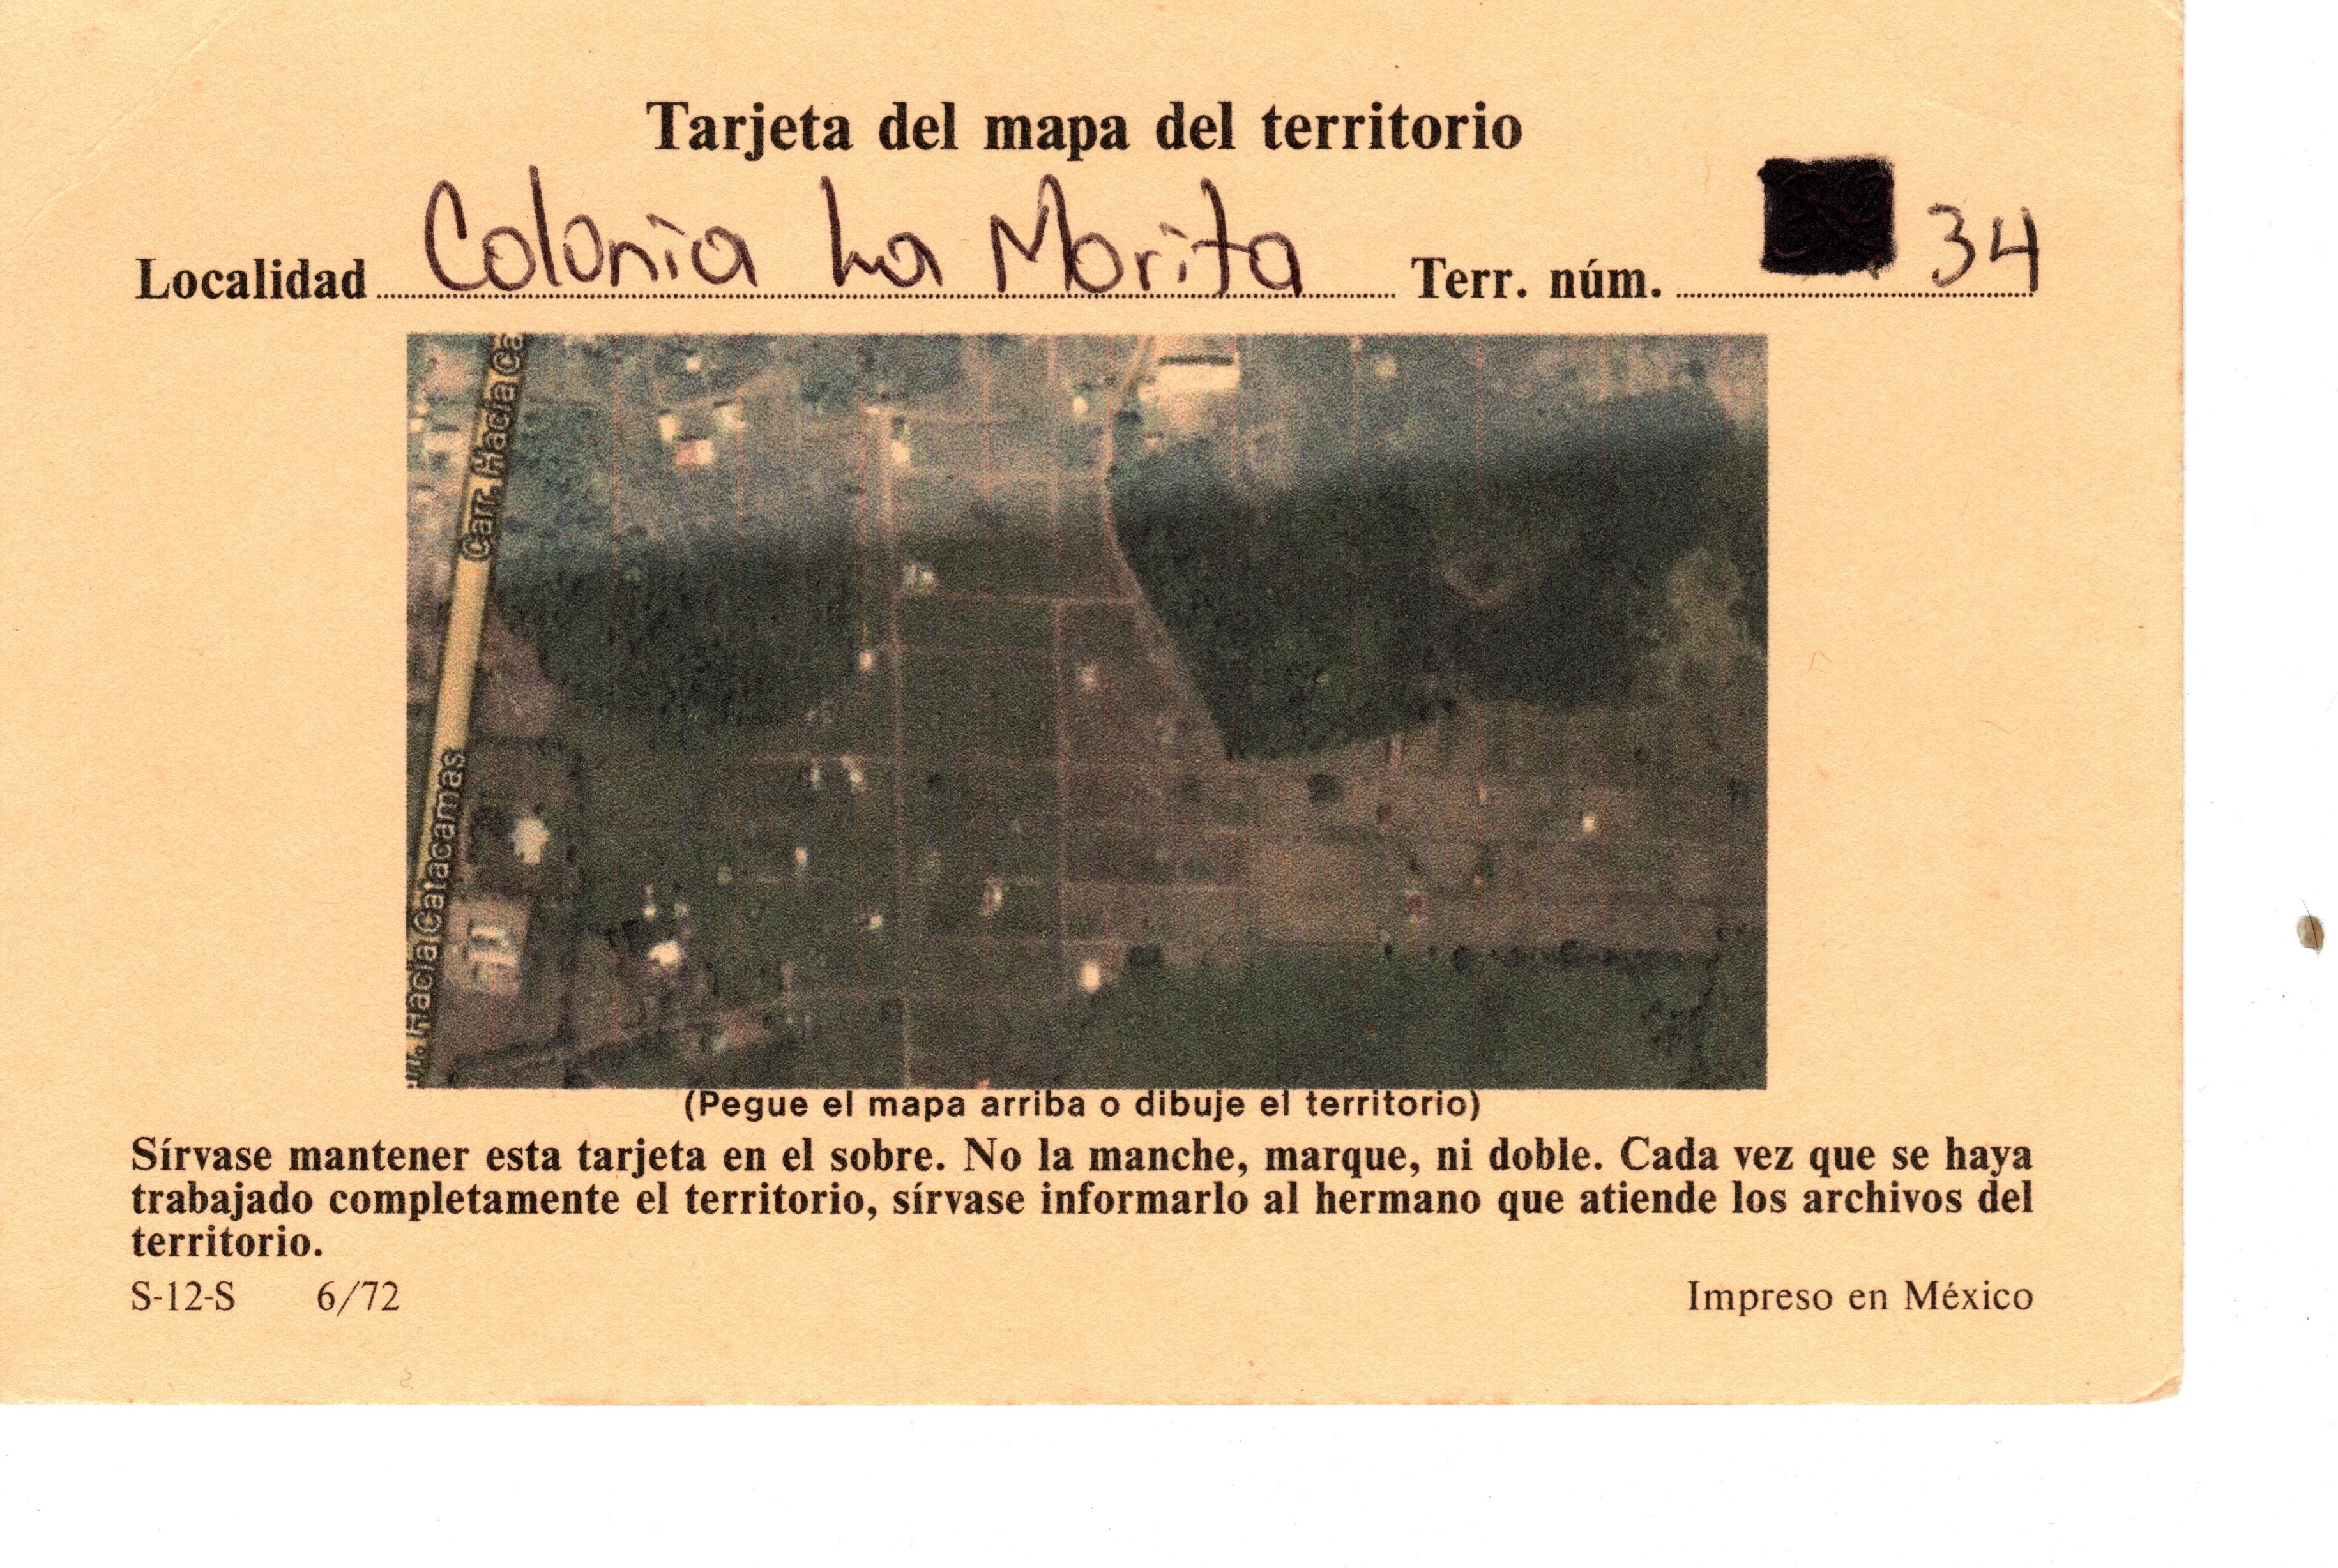 Tarjeta del mapa del territorio
Localidad Colonia La Morita Terr. núm. 34
Carr. Hacia Ca
Hacia Catacamas
(Pegue el mapa arriba o dibuje el territorio)
Sírvase mantener esta tarjeta en el sobre. No la manche, marque, ni doble. Cada vez que se haya
trabajado completamente el territorio, sírvase informarlo al hermano que atiende los archivos del
territorio.
S-12-S 6/72 Impreso en México